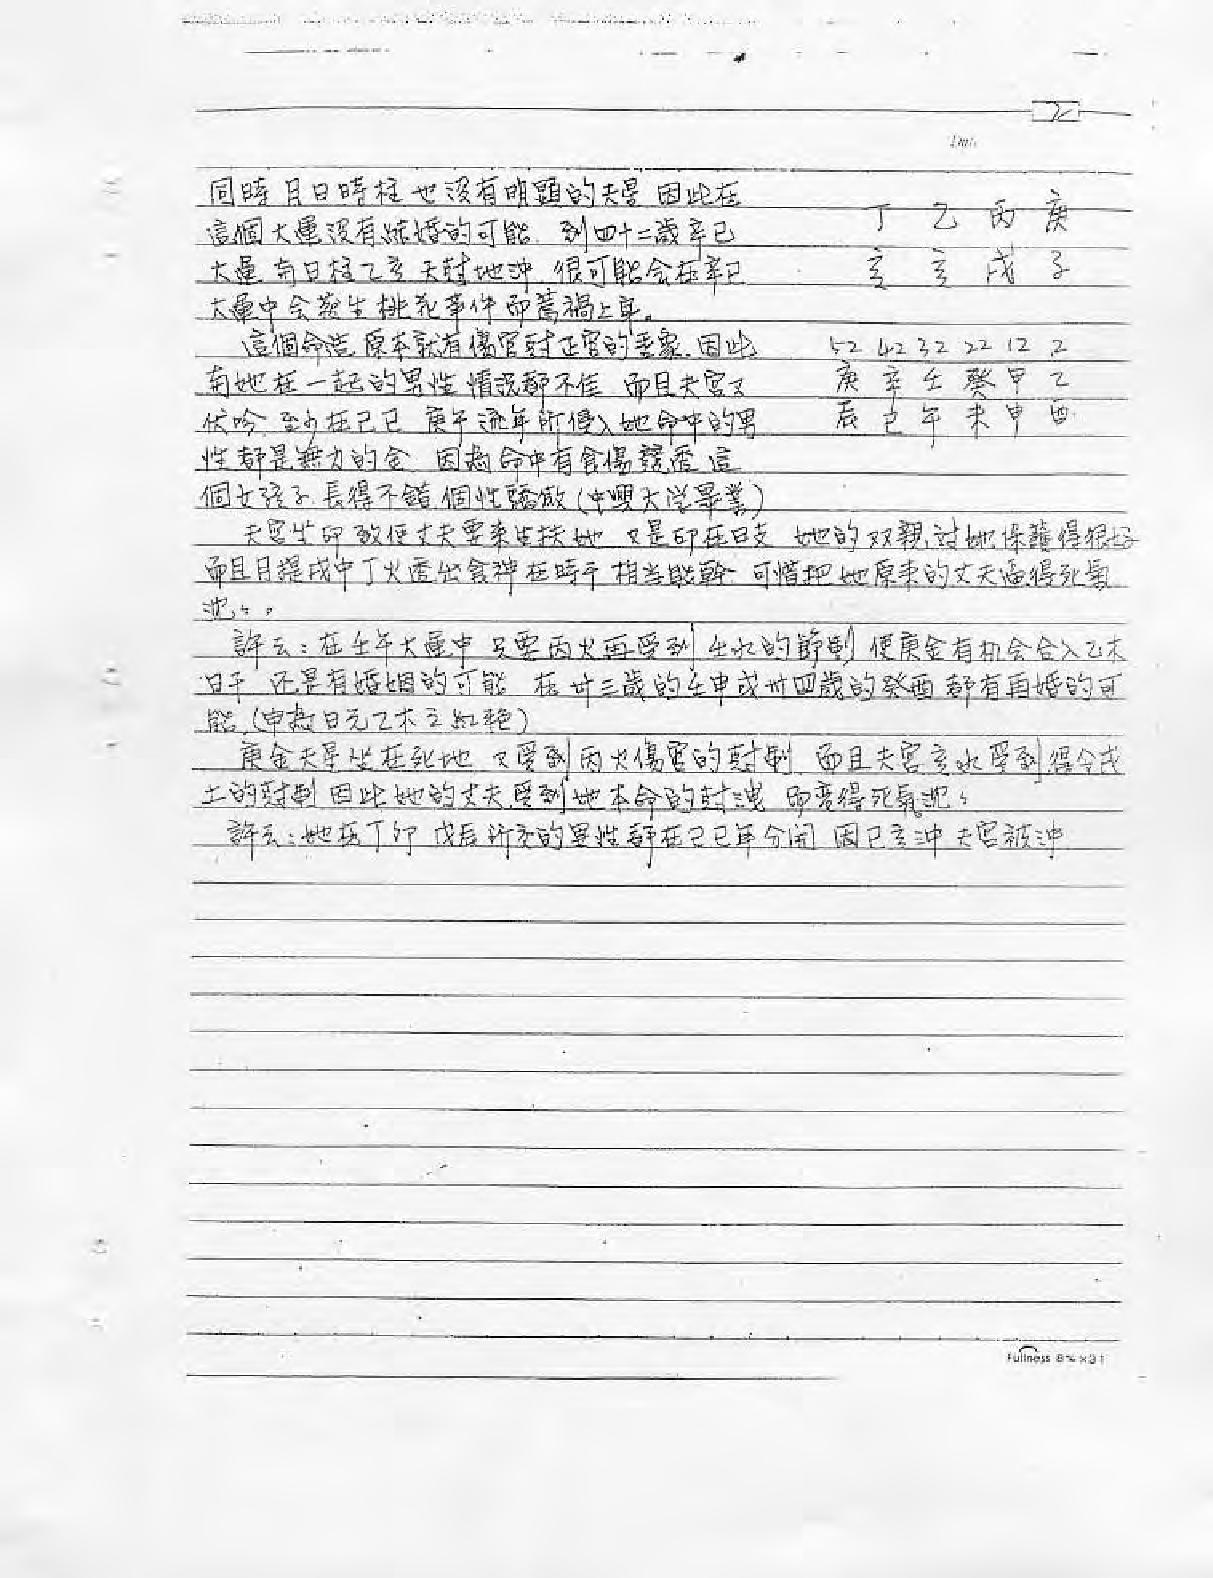 2
Date
同時月日時柱也沒有明顯的夫星 因此在
這個大運沒有結婚的可能 到四十二歲辛巳
大運 與日柱乙亥天尅地沖 很可能会在辛巳
大運中会發生桃花事件而舊禍上身。
丁 乙 丙 庚
亥 亥 戌 子
52 42 32 22 12 2
庚 辛 壬 癸 甲 乙
辰 巳 午 未 申 酉
這個命造原本就有傷官尅正官的重象 因此
與她在一起的男性情況都不佳 而且夫宮又
伏吟 至少在己巳 庚午流年所侵入她命中的男
性都是無力的金 因為命中有食傷 這
個女孩子長得不錯 個性驕傲(中興大学畢業)
夫宮坐印 致使丈夫要來生扶她 又是印在日支 她的双親對她保護得很好
而且月提戌中丁火透出食神在時干 相当能幹 可惜把她原來的丈夫逼得死氣
沈沈。
許云:在壬午大運中 只要丙火再受到壬水的節制 使庚金有机会合入乙木
日干 还是有婚姻的可能 在卅三歲的壬申或卅四歲的癸酉都有再婚的可
能(申為日元乙木之紅艳)
庚金夫星坐在死地 又受到丙火傷官的尅制 而且夫宮亥水受到得令戌
土的尅制 因此她的丈夫受到她本命的尅洩 而变得死氣沈沈
許云:她在丁卯 戊辰所交的異性都在己巳年分開 因巳亥沖夫宮被沖
Fullness 8¾×31